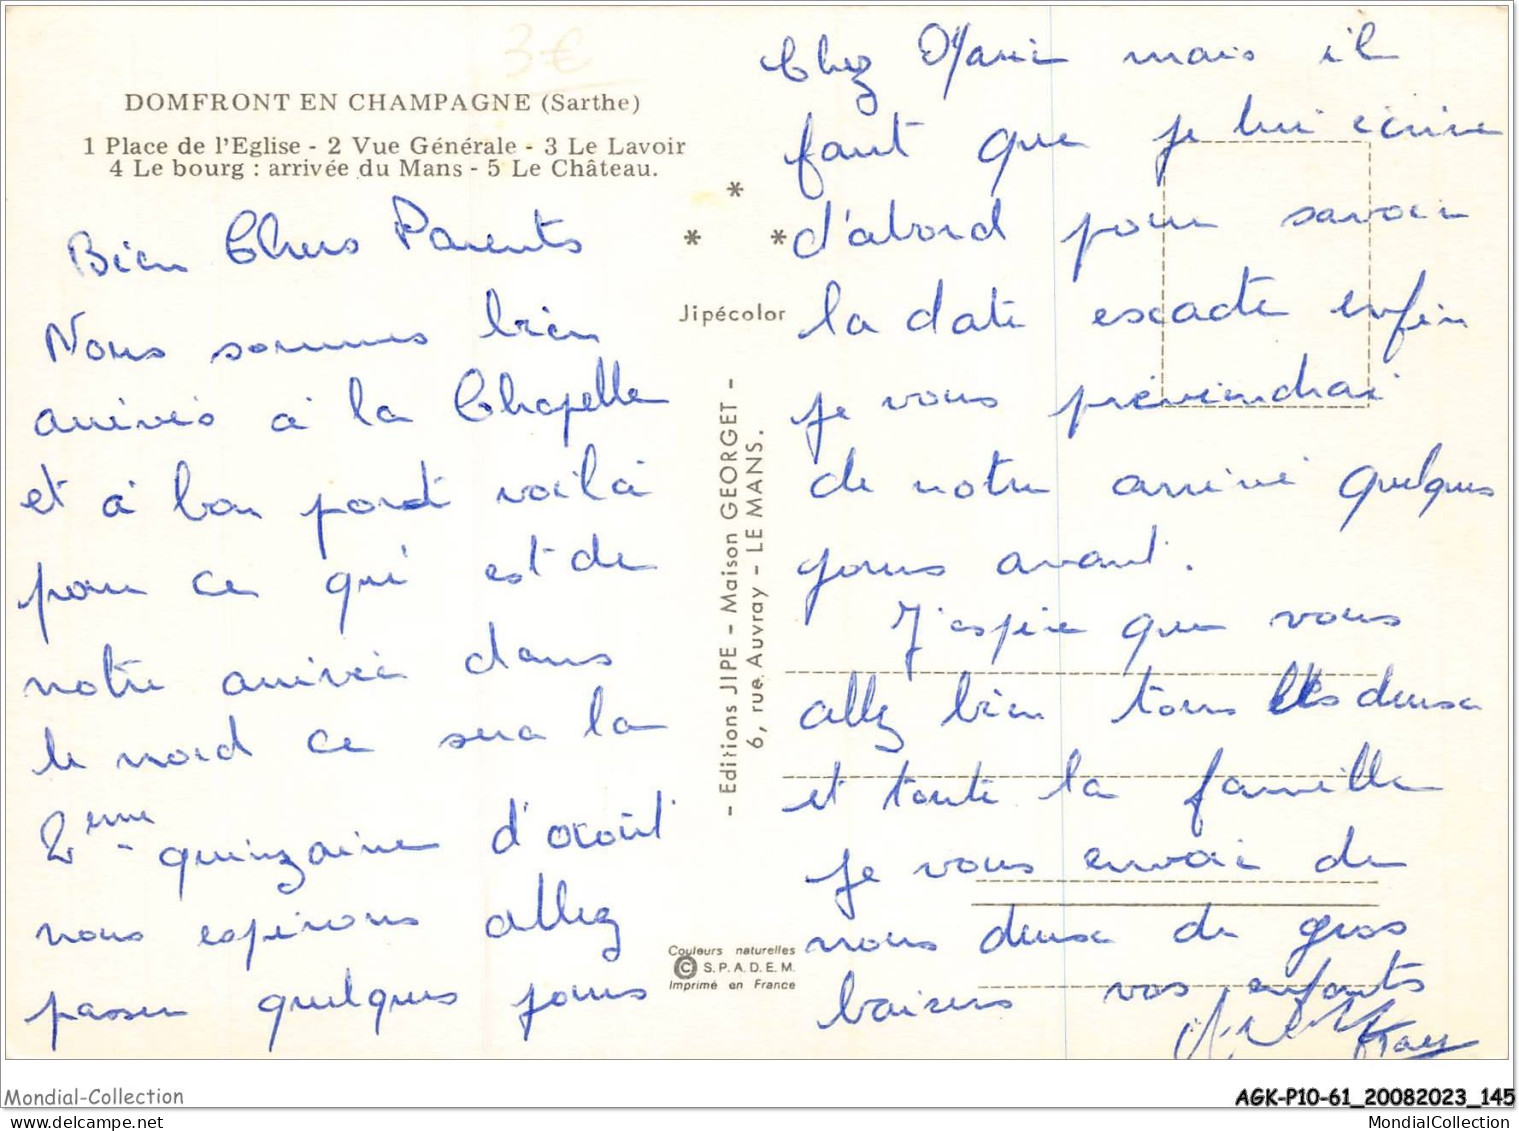 3€
DOMFRONT EN CHAMPAGNE (Sarthe)
1 Place de l'Eglise - 2 Vue Générale - 3 Le Lavoir
4 Le bourg : arrivée du Mans - 5 Le Château.
Bien Chers Parents
Nous sommes bien
arrivés à la Chapelle
et à bon pord voilà
pour ce qui est de
notre arrivée dans
le nord ce sera la
2ème - quinzaine d'août
nous espérons allez
passer quelques jours
* * *
Jipécolor
- Editions JIPE - Maison GEORGET -
6, rue Auvray - LE MANS.
Couleurs naturelles
© S.P.A.D.E.M.
Imprimé en France
Chez Marie mais il
faut que je lui écrire
d'abord pour savoir
la date exacte enfin
je vous préviendrai
de notre arrivé quelques
jours avant.
J'espère que vous
allez bien tous les deux
et toute la famille
je vous envoie de
nous deux de gros
baisers vos enfants
Mondial-Collection
AGK-P10-61_20082023_145
at mondial-collection.com
MondialCollection